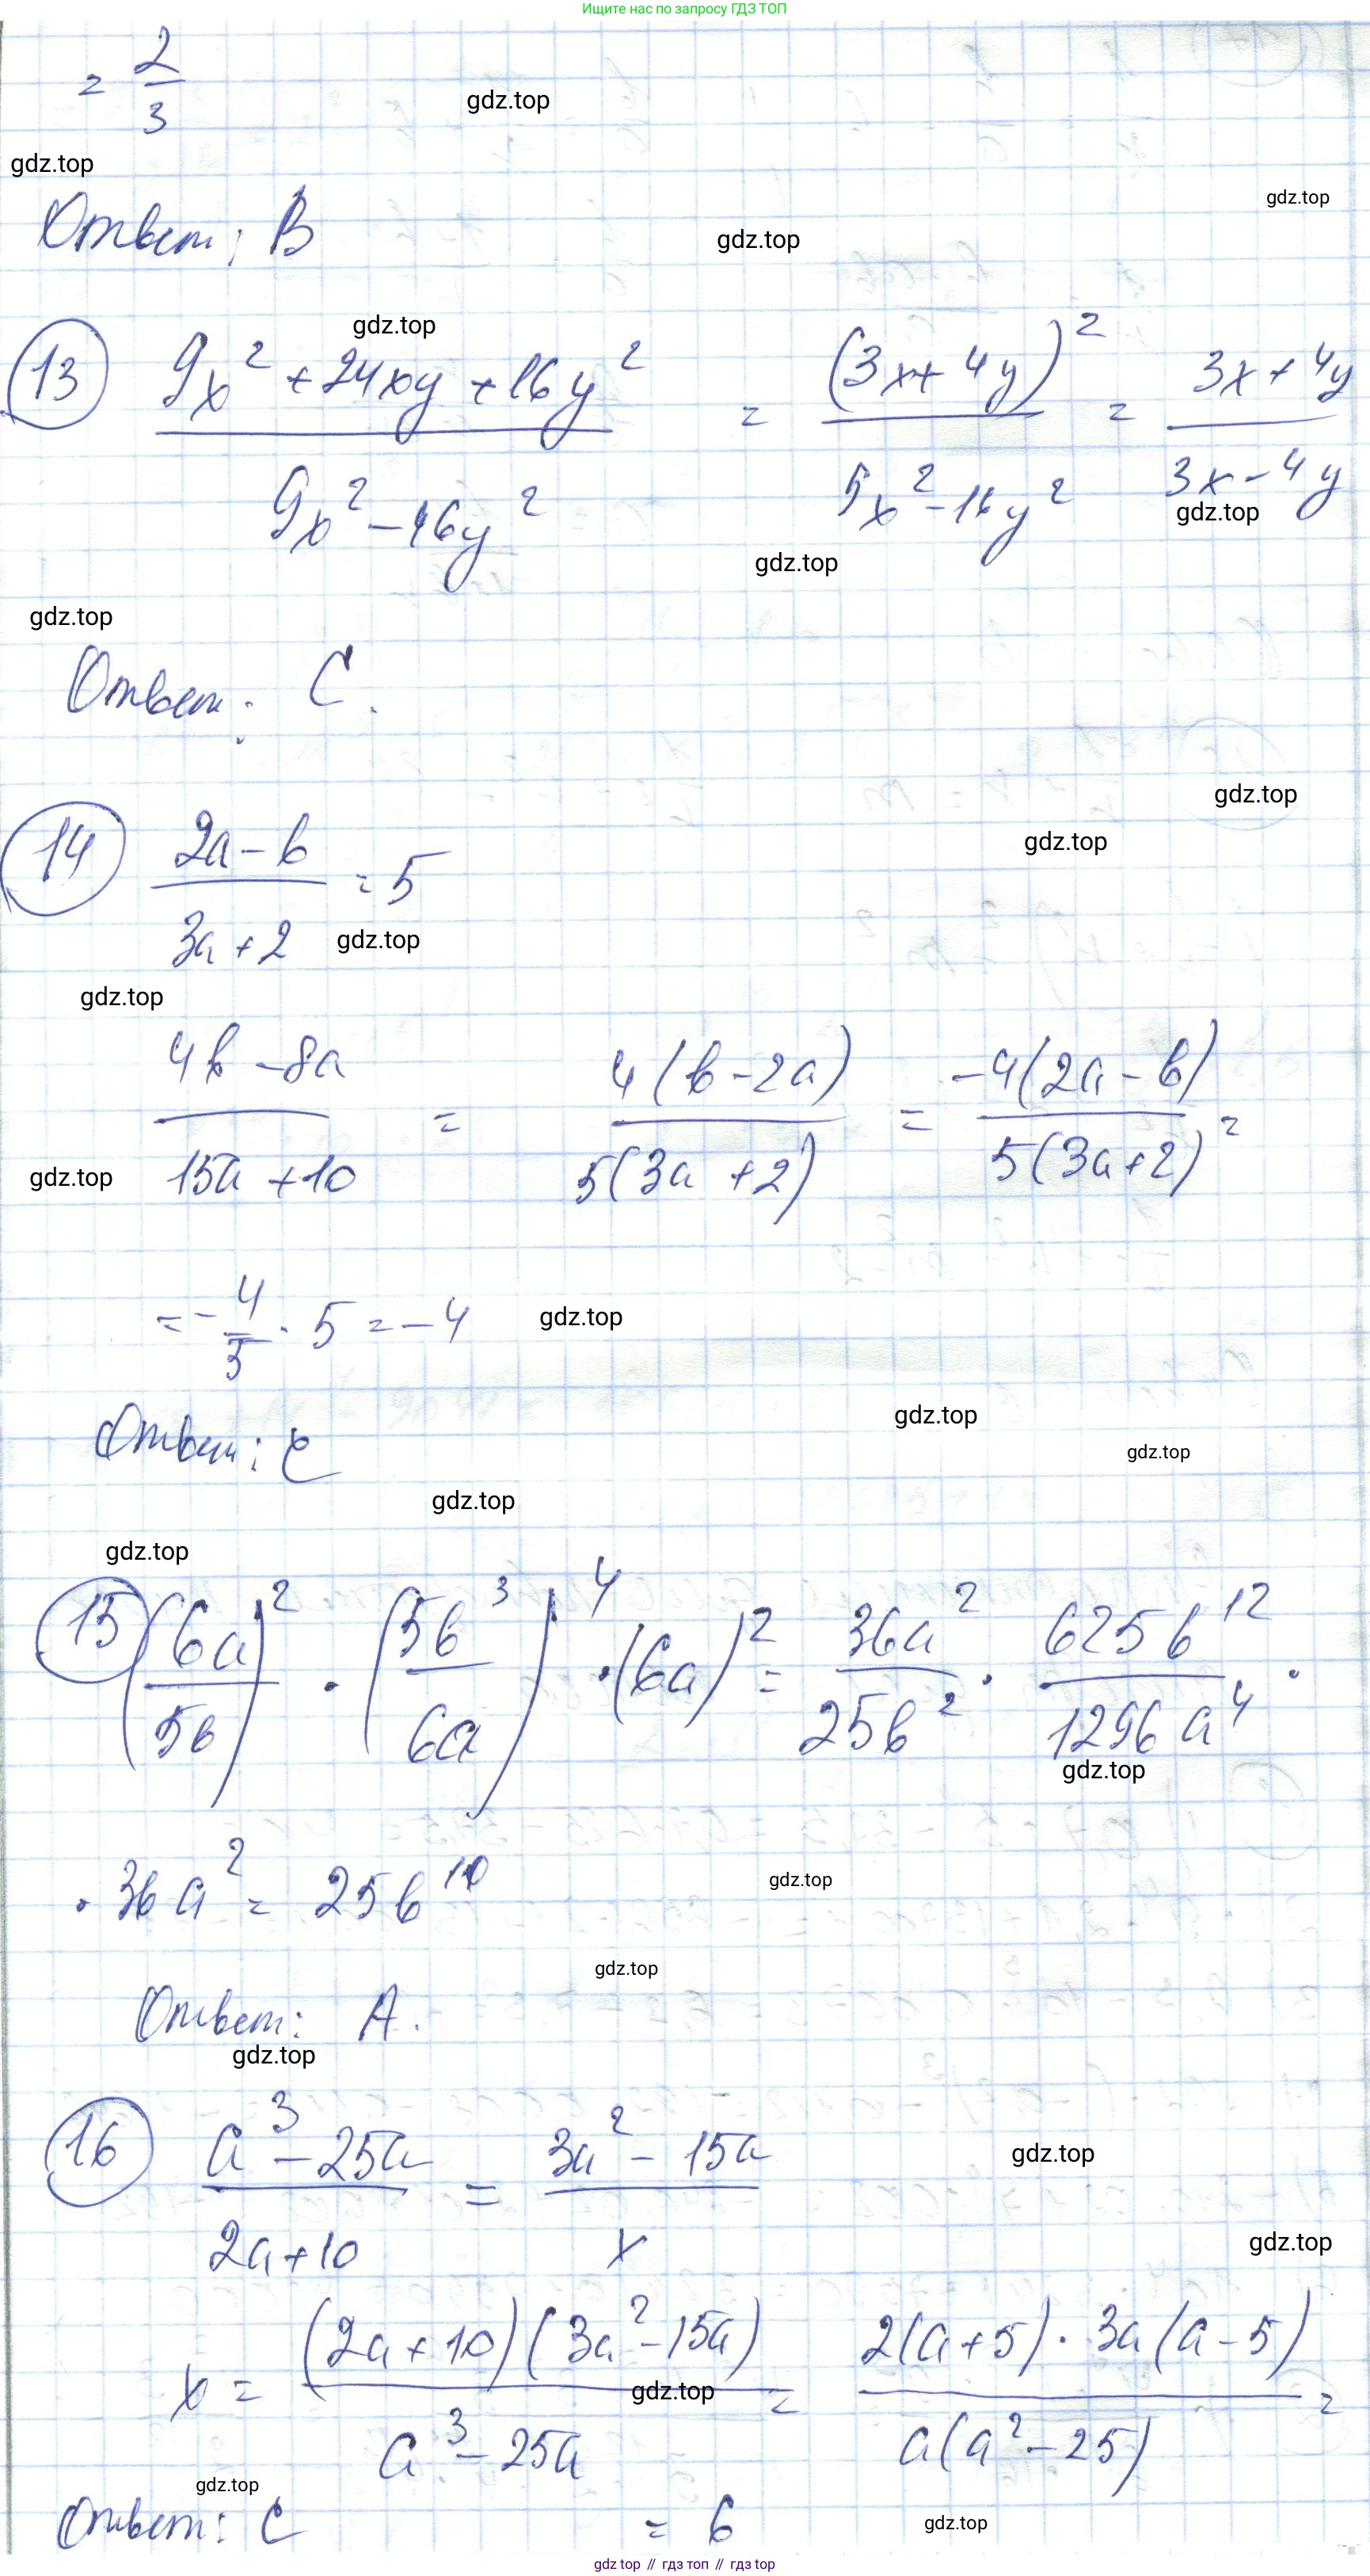 Ищите нас по запросу ГДЗ ТОП
= 2/3
gdz.top
gdz.top
gdz.top
Ответ: B
gdz.top
gdz.top
13 (9x² + 24xy + 16y²)/(9x² - 16y²) = (3x + 4y)²/(5x² - 16y²) = (3x + 4y)/(3x - 4y)
gdz.top
gdz.top
gdz.top
Ответ: C.
gdz.top
gdz.top
14 (2a - b)/(3a + 2) = 5
gdz.top
gdz.top
(4b - 8a)/(15a + 10) = 4(b - 2a)/5(3a + 2) = -4(2a - b)/5(3a + 2) =
gdz.top
= - 4/5 · 5 = -4
gdz.top
gdz.top
Ответ: C
gdz.top
gdz.top
gdz.top
15 (6a/5b)² · (5b³/6a)⁴ · (6a)² = 36a²/25b² · 625b¹²/1296a⁴ ·
gdz.top
· 36a² = 25b¹⁰
gdz.top
gdz.top
Ответ: A.
gdz.top
16 (a³ - 25a)/(2a + 10) = (3a² - 15a)/x
gdz.top
gdz.top
x = (2a + 10)(3a² - 15a)/(a³ - 25a) = 2(a + 5) · 3a(a - 5)/a(a² - 25) =
gdz.top
gdz.top
Ответ: C = 6
gdz.top
gdz top // гдз топ // gdz top